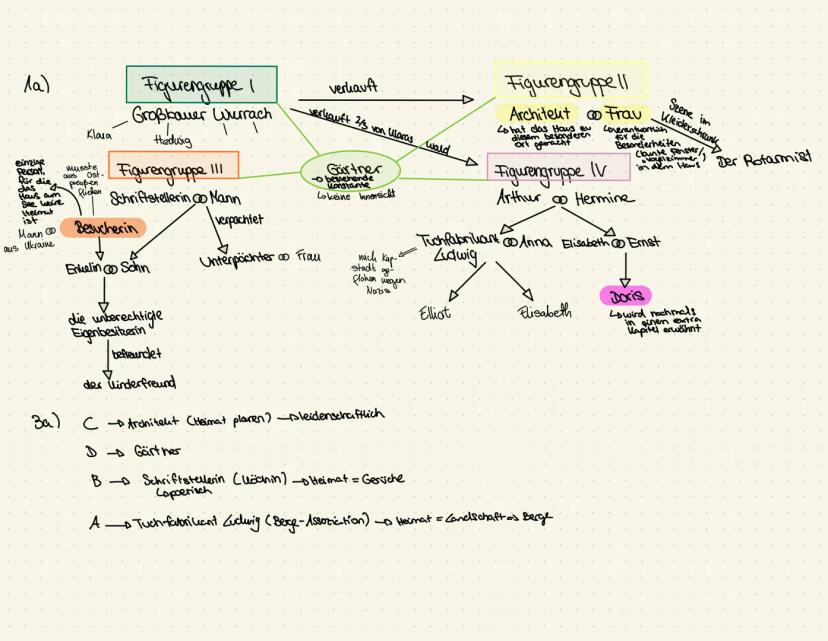 1a)
Figurengruppe I
verkauft
Figurengruppe II
Großbauer Wurrach
Klara
Hedwig
verkauft 2/3 von Klaras Wald
Architekt ∞ Frau
↳ hat das Haus zu
diesem besonderen
Ort gemacht
↳ verantwortlich
für die
Besonderheiten
(bunte Fenster/
in dem Haus
Szene im
Kleiderschrank
Der Rotarmist
Gärtner
→ bestehende
Konstante
↳ keine Innensicht
einzige
Person,
für die
das
Haus am
See keine
Heimat
ist
musste
aus Ost-
preußen
fliehen
Figurengruppe III
Schriftstellerin ∞ Mann
verpachtet
Figurengruppe IV
Arthur ∞ Hermine
Besucherin
Mann ∞
aus Ukraine
Enkelin ∞ Sohn
Unterpächter ∞ Frau
nach Kap-
stadt ge-
flohen wegen
Nazis
Tuchfabrikant ∞ Anna
Ludwig
Elisabeth ∞ Ernst
Elliot
Elisabeth
Doris
↳ wird nochmals
in einem extra
Kapitel erwähnt
die unberechtigte
Eigenbesitzerin
befreundet
der Kinderfreund
3a)
C → Architekt (Heimat planen) → leidenschaftlich
D → Gärtner
B → Schriftstellerin (Köchin) → Heimat = Gerüche
↳ poetisch
A → Tuch-fabrikant Ludwig (Berge-Assoziation) → Heimat = Landschaft → Berge